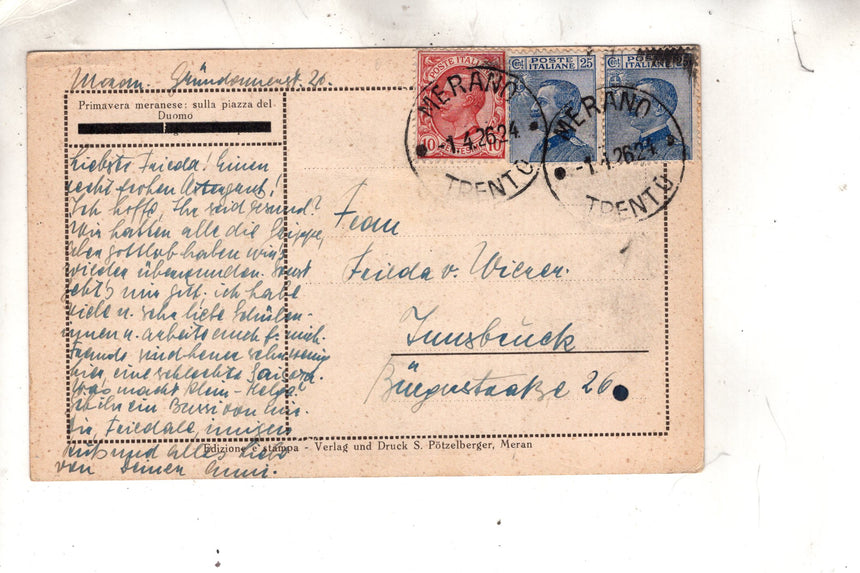 Meran - Gründonnerst. 26
Primavera meranese: sulla piazza del
Duomo
Liebste Frieda! Einen
recht frohen Ostergruß!
Ich hoffe, Ihr seid gesund?
Wir hatten alle die Grippe,
aber gottlob haben wir's
wieder überwunden. Sonst
geht's mir gut, ich habe
viele u. sehr liebe Schüler-
innen u. arbeite auch f. mich.
Fremde sind heuer sehr wenig
hier, eine schlechte Saison.
Was macht klein-Helga?
ein Bussi von mir.
Dir, Friedale, innigen
Kuß und alles Liebe
von Deiner Anni.
POSTE ITALIANE
10
POSTE
ITALIANE 25
POSTE
ITALIANE 25
MERANO
-1.4.26 24
TRENTO
MERANO
-1.4.26 24
TRENTO
Frau
Frieda v. Wieser.
Innsbruck
Bürgerstraße 26
Edizione e stampa - Verlag und Druck S. Pötzelberger, Meran